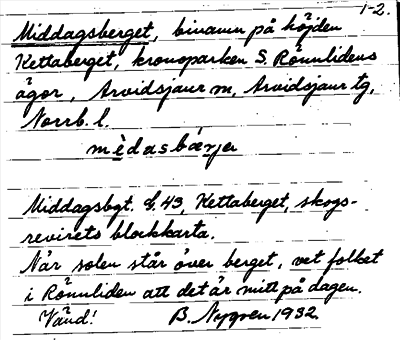 1-2.
Middagsberget, binamn på höjden
Kettaberget, kronoparken S. Rönnlidens
ägor, Arvidsjaur m, Arvidsjaur tg,
Norrb. l.
mèdasbærjer
Middagsbgt. G. 43, Kettaberget, skogs-
revirets blockkarta.
När solen står över berget, vet folket
i Rönnliden att det är mitt på dagen.
Vänd! B. Nygren 1932.